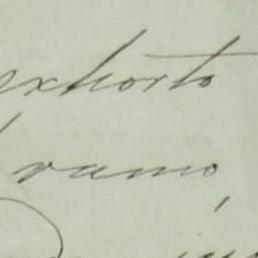 exhorto
ramo,